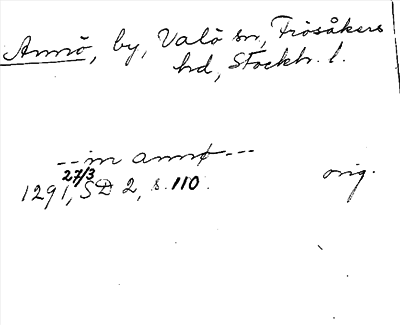 Annö, by, Valö sn, Frösåkers
hd, Stockh. l.
--in annö---
27/3
1291, SD 2, s. 110.
orig.